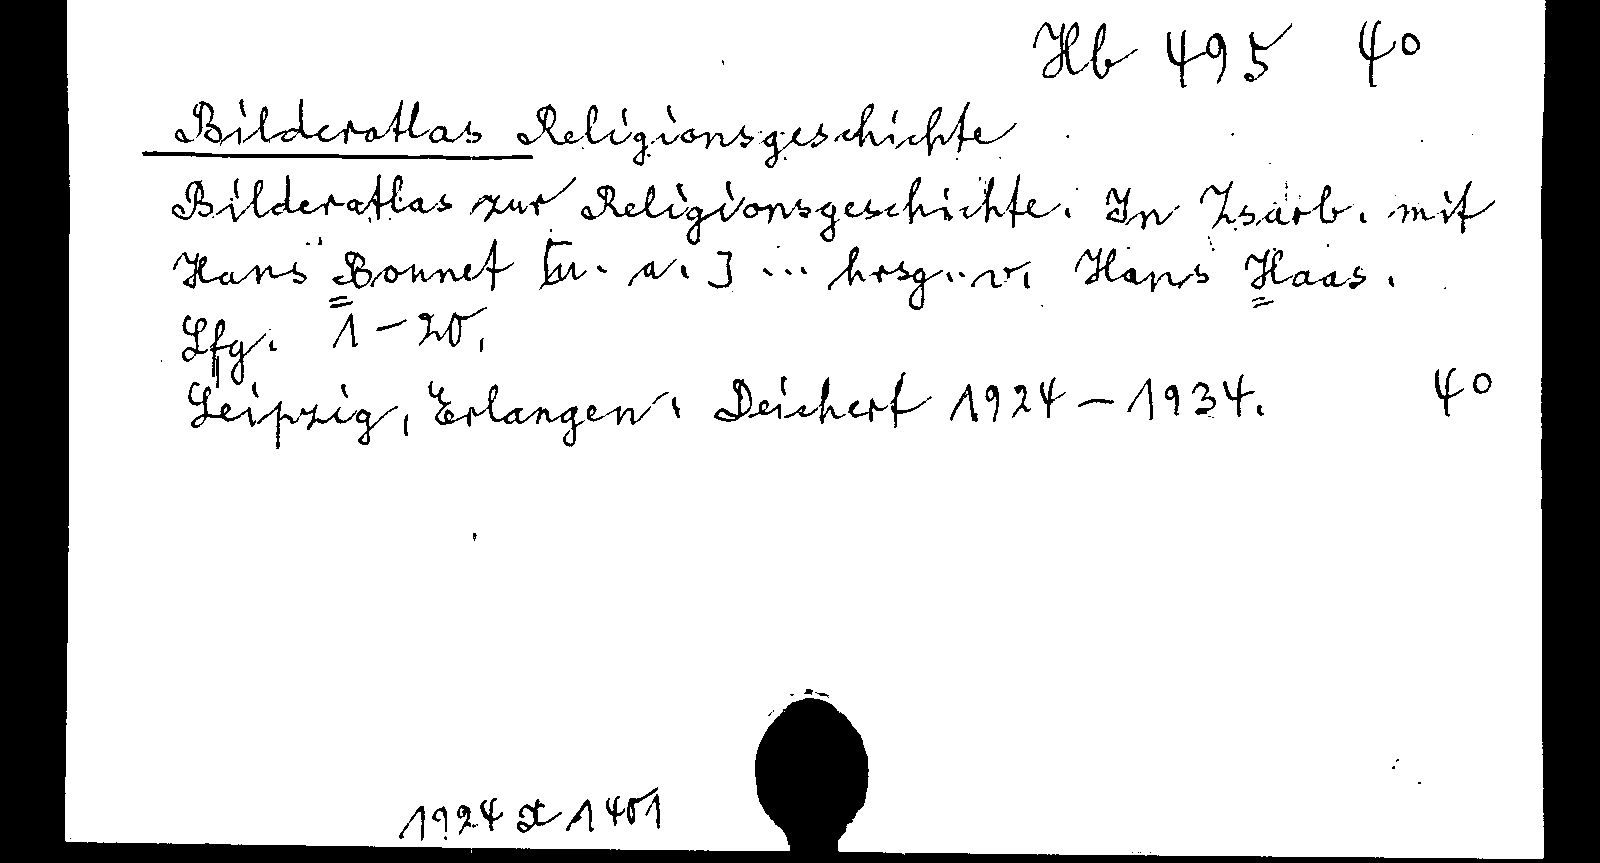 Hb 495 4°
Bilderatlas Religionsgeschichte
Bilderatlas zur Religionsgeschichte. In Zsarb. mit
Hans Bonnet [u. a.] ... hrsg. v. Hans Haas.
Lfg. 1-20.
Leipzig, Erlangen: Deichert 1924-1934. 4°
1924 x 1401